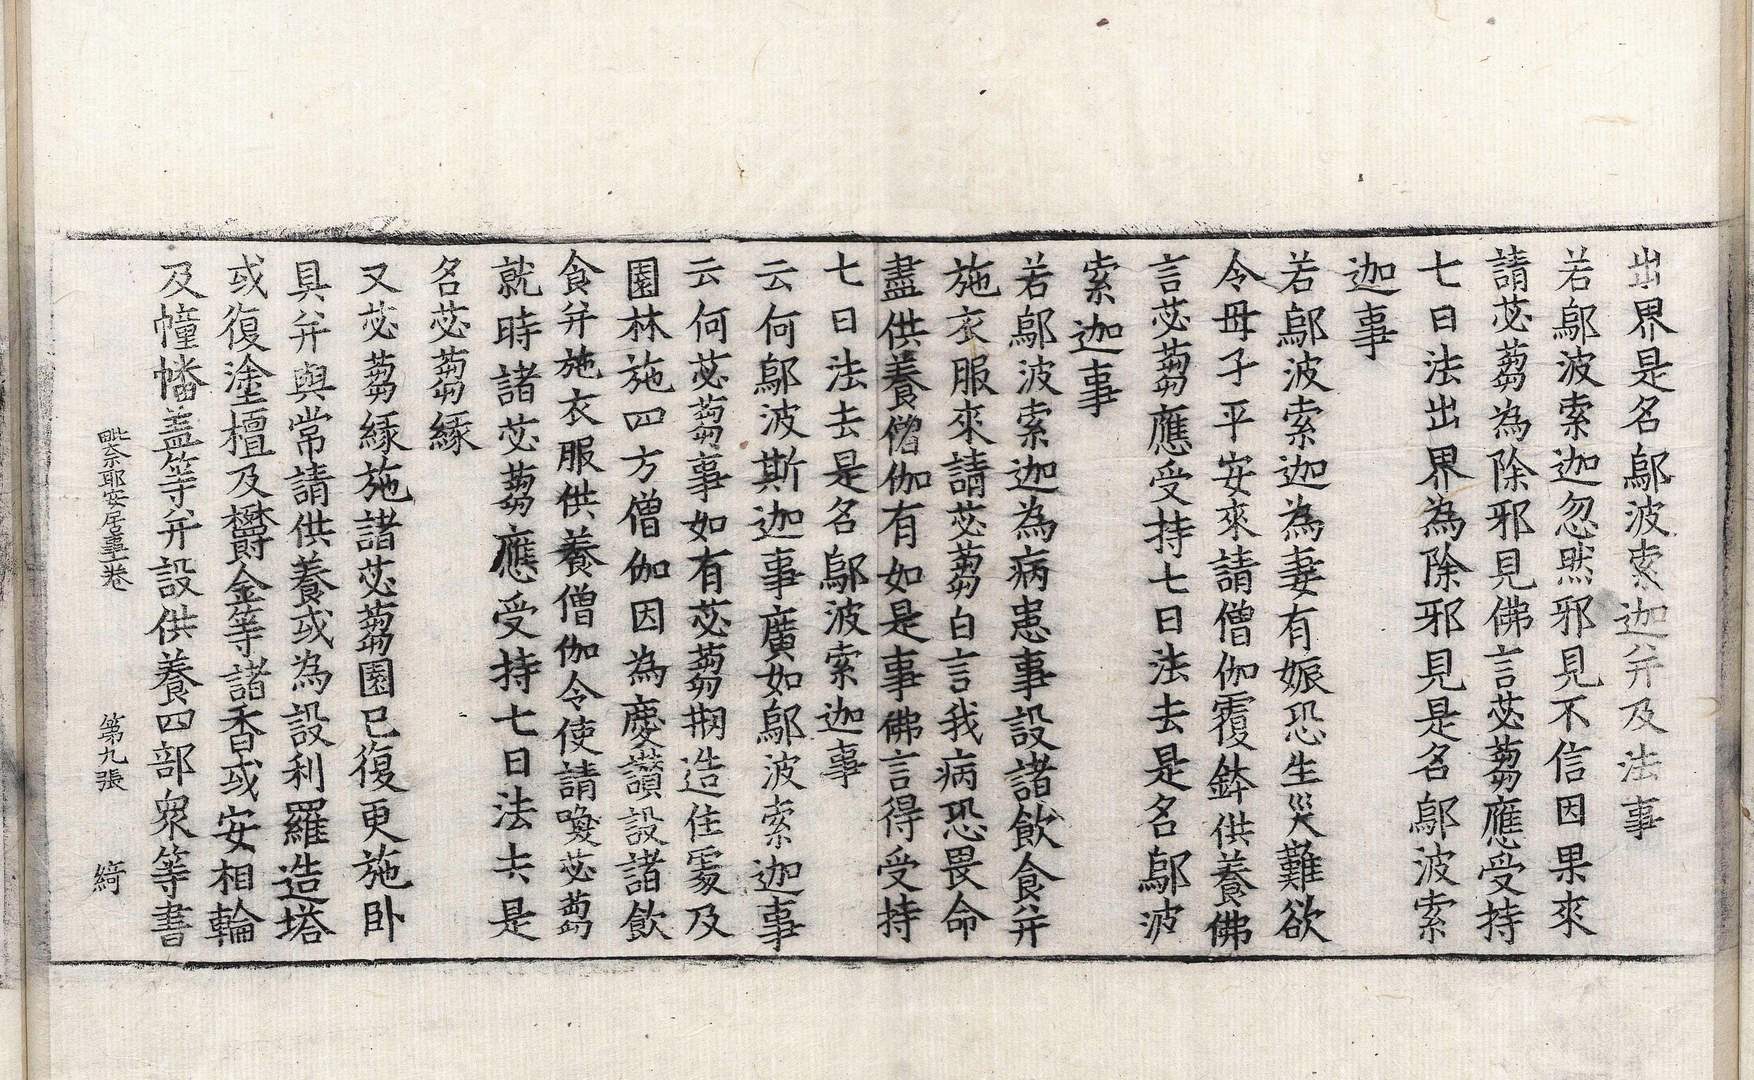 出界是名鄔波索迦并及法事
若鄔波索迦忽然邪見不信因果來
請苾蒭為除邪見佛言苾蒭應受持
七日法出界為除邪見是名鄔波索
迦事
若鄔波索迦為妻有娠恐生災難欲
令母子平安來請僧伽覆鉢供養佛
言苾蒭應受持七日法去是名鄔波
索迦事
若鄔波索迦為病患事設諸飲食并
施衣服來請苾蒭白言我病恐畏命
盡供養僧伽有如是事佛言得受持
七日法去是名鄔波索迦事
云何鄔波斯迦事廣如鄔波索迦事
云何苾蒭事如有苾蒭剏造住處及
園林施四方僧伽因為慶讚設諸飲
食并施衣服供養僧伽令使請喚苾蒭
就時諸苾蒭應受持七日法去是
名苾蒭緣
又苾蒭緣施諸苾蒭園已復更施卧
具并與常請供養或為設利羅造塔
或復塗檀及欝金等諸香或安相輪
及幢幡盖等并設供養四部衆等書
毗奈耶安居事一卷 第九張 綺